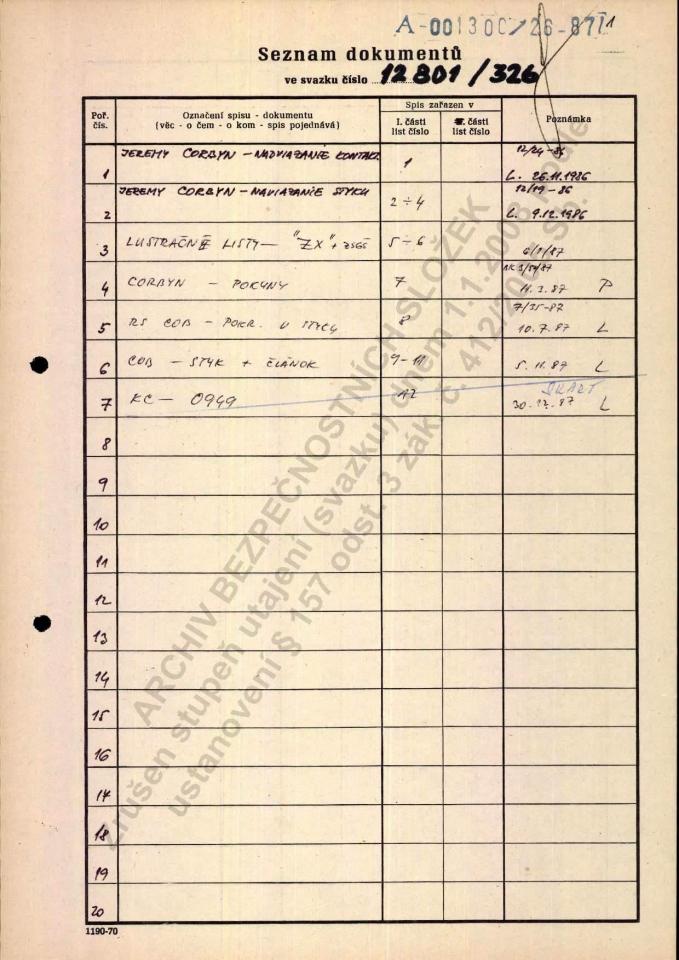 A-00130C/26-87
1
Seznam dokumentů
ve svazku číslo 12 801/326
Poř. čís.
Označení spisu - dokumentu
(věc - o čem - o kom - spis pojednává)
Spis zařazen v
I. části list číslo
II. části list číslo
Poznámka
1 JEREMY CORBYN – NADVIAZANIE KONTAKT. 1 12/24-86
L. 26.11.1986
2 JEREMY CORBYN – NAVIAZANIE STYKU 2÷4 12/19-86
L. 9.12.1986
3 LUSTRAČNÉ LISTY – "ZX" + ZSGŠ 5÷6 6/1/87
4 CORBYN – POKYNY 7 11.3.87 P
5 RS COB – POKR. V STYKU 8 7/35-87
10.7.87 L
6 COB – STYK + ČLÁNOK 9-11 5.11.87 L
7 KC – 0949 12 SKART
30.12.87 L
8
9
10
11
12
13
14
15
16
17
18
19
20
1190-70
ARCHIV BEZPEČNOSTNÍCH SLOŽEK
Zrušen stupeň utajení (svazku) dnem 1.1.2008 podle
ustanovení § 157 odst. 3 zák. č. 412/2005 Sb.